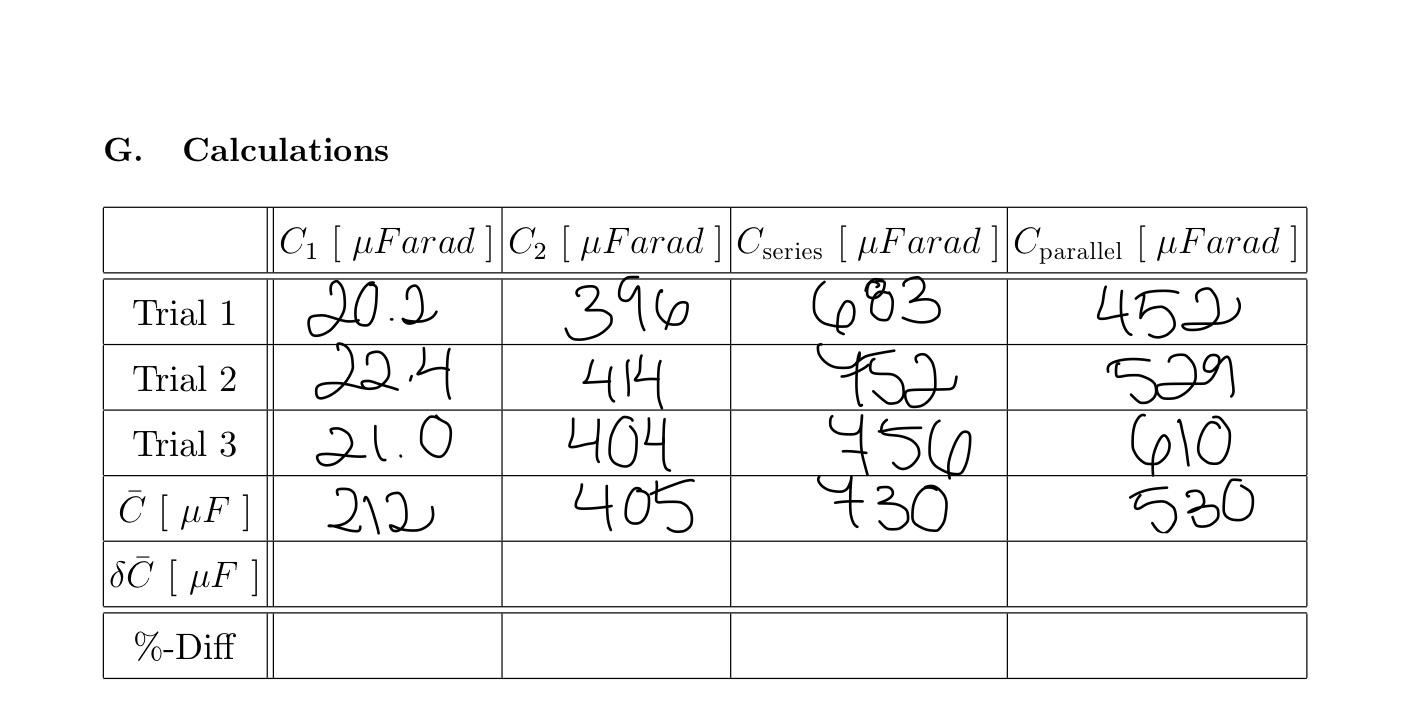 G. Calculations
C₁ [ μFarad ] C₂ [ μFarad ] C_series [ μFarad ] C_parallel [ μFarad ]
Trial 1 20.2 396 683 452
Trial 2 22.4 414 752 529
Trial 3 21.0 404 756 610
C̄ [ μF ] 212 405 730 530
δC̄ [ μF ]
%-Diff